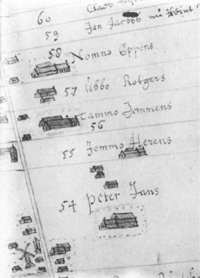 60 Claas
59 Jan Jacobs nu
58 Nomno Eppens
57 Ubbo Rotgers
Tammo Jemmens
56
55 Jemmo Herens
54 Peter Jans